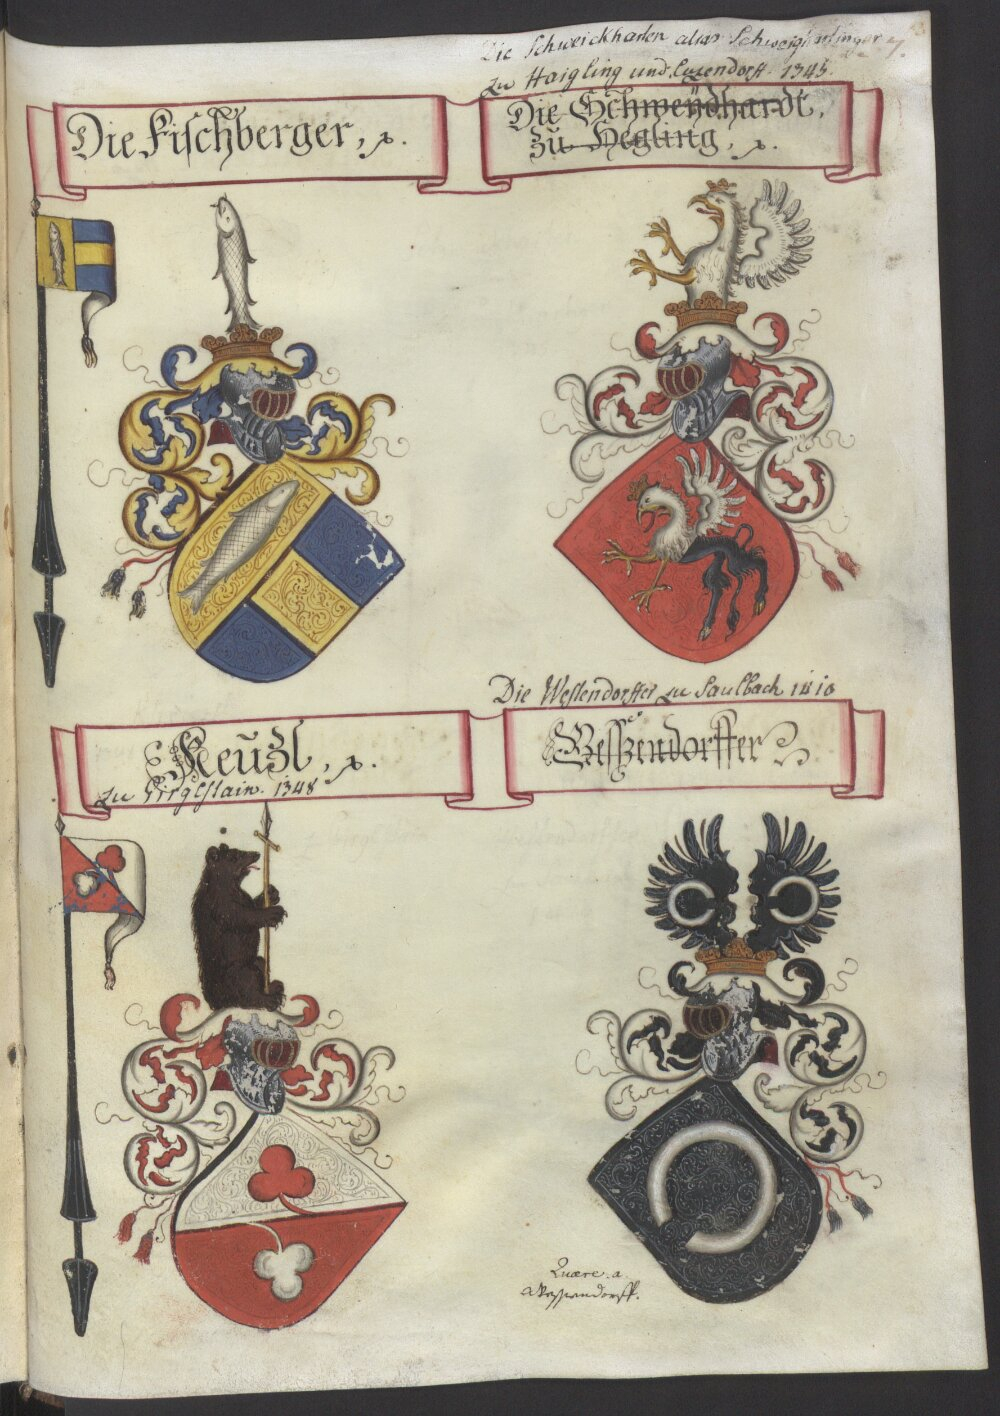 Die Schweickharten alias Schweigharlinger
zu Haigling und Luzendorff. 1345.
7.
Die Fischberger, 
Die Schweÿdhardt,
Zu Hegling, 
Die Westendorffer zu Saulbach 1810
Reuzl, 
zu Girglstain. 1348
Wesszendorffer
Quære. a.